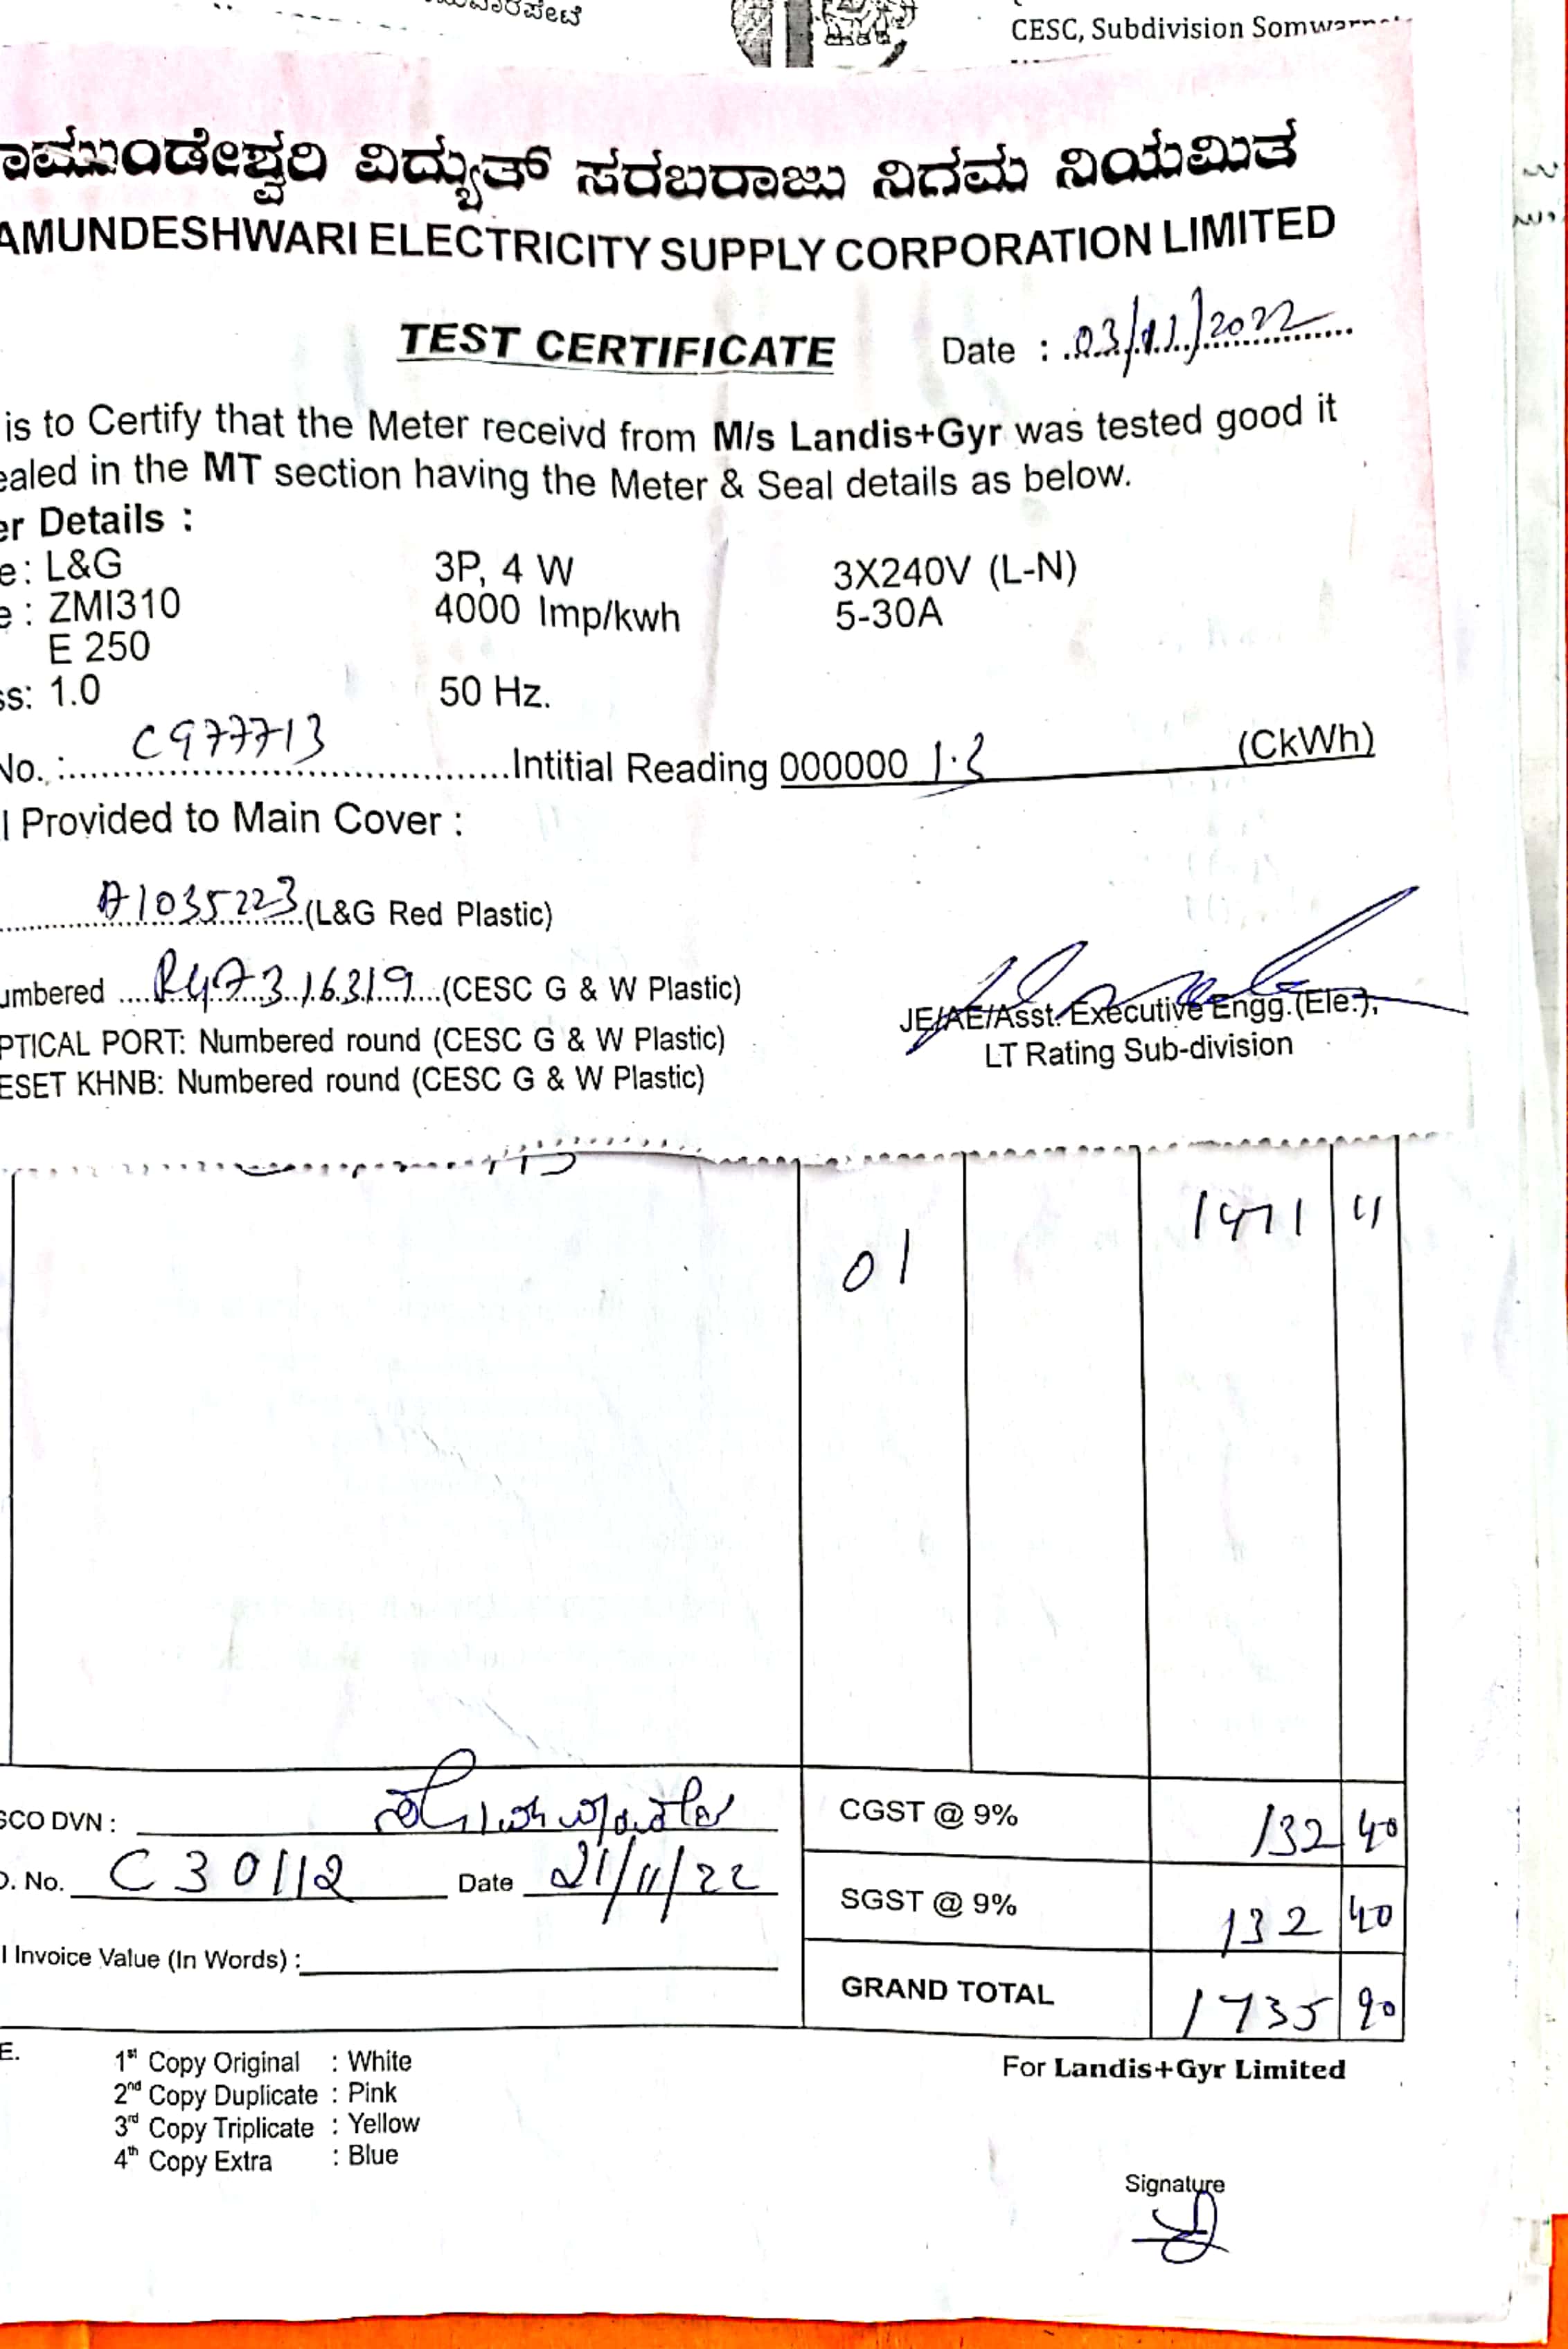 CESC, Subdivision Somwarpet
ಾಮುಂಡೇಶ್ವರಿ ವಿದ್ಯುತ್ ಸರಬರಾಜು ನಿಗಮ ನಿಯಮಿತ
AMUNDESHWARI ELECTRICITY SUPPLY CORPORATION LIMITED
TEST CERTIFICATE Date : 03/11/2022
is to Certify that the Meter receivd from M/s Landis+Gyr was tested good it
ealed in the MT section having the Meter & Seal details as below.
er Details :
e: L&G 3P, 4 W 3X240V (L-N)
e : ZMI310 4000 Imp/kwh 5-30A
E 250
ss: 1.0 50 Hz.
No. : C977713 Intitial Reading 000000 1.3 (CkWh)
l Provided to Main Cover :
A1035223 (L&G Red Plastic)
umbered R47316319 (CESC G & W Plastic)
PTICAL PORT: Numbered round (CESC G & W Plastic)
ESET KHNB: Numbered round (CESC G & W Plastic)
JE/AE/Asst. Executive Engg.(Ele.),
LT Rating Sub-division
01 1471 11
SCO DVN :
CGST @ 9% 132 40
O. No. C30112 Date 21/11/22
SGST @ 9% 132 40
l Invoice Value (In Words) :
GRAND TOTAL 1735 90
E.
1st Copy Original : White
2nd Copy Duplicate : Pink
3rd Copy Triplicate : Yellow
4th Copy Extra : Blue
For Landis+Gyr Limited
Signature